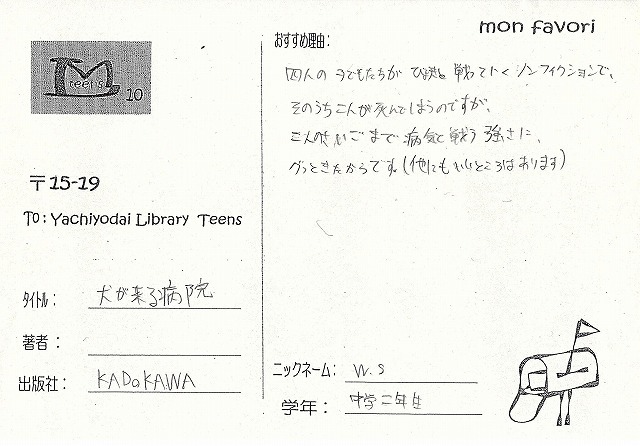 mon favori
おすすめ理由:
四人の子どもたちが 病気と 戦っていく ノンフィクションで、
そのうち二人が死んでしまうのですが、
二人のさいごまで 病気と戦う 強さに、
グッときたからです。(他にもいいところはあります)
teens
10
〒15-19
To: Yachiyodai Library Teens
タイトル: 犬が来る病院
著者:
出版社: KADOKAWA
ニックネーム: W.S
学年: 中学二年生